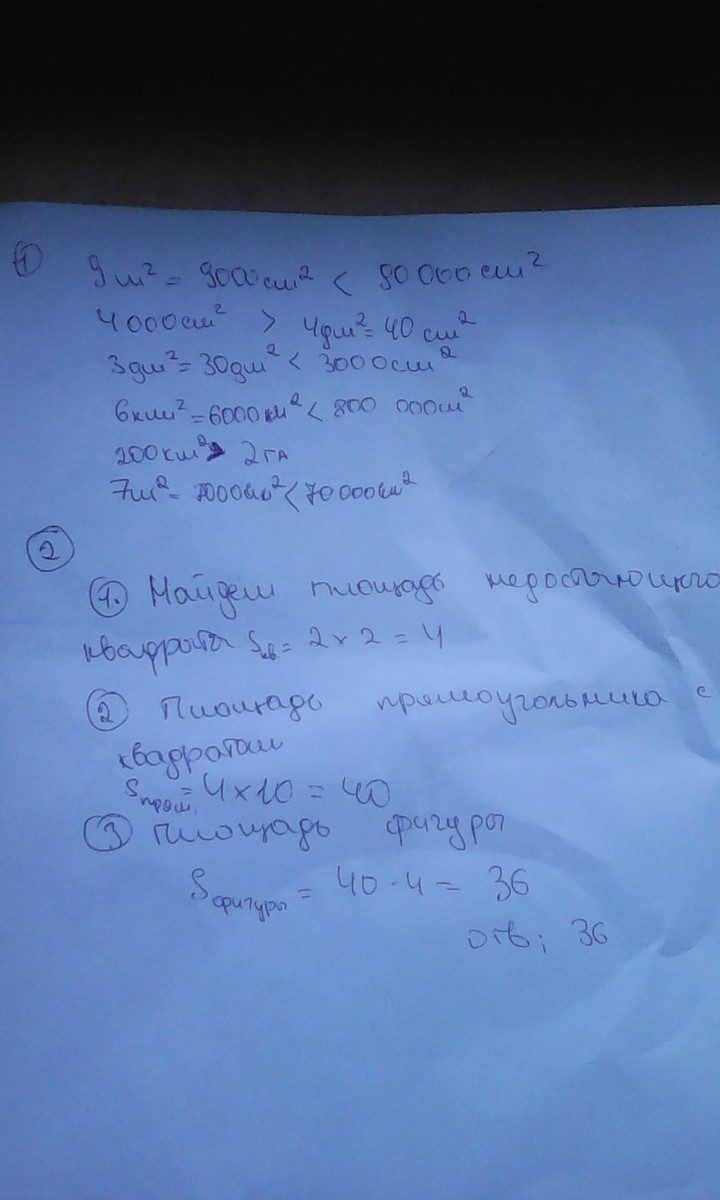 ① 9м² = 9000см² < 90 000 см²
4 000см² > 4дм² = 40 см²
3дм² = 30дм² < 3000см²
6км² = 6000км² < 800 000м²
200км² > 2га
7м² = 7000см² < 70 000см²
②
①. Найдем площадь недостающего
квадрата Sкв = 2 × 2 = 4
② Площадь прямоугольника с
квадратом
Sпрям. = 4 × 10 = 40
③ площадь фигуры
Sфигуры = 40 - 4 = 36
отв; 36